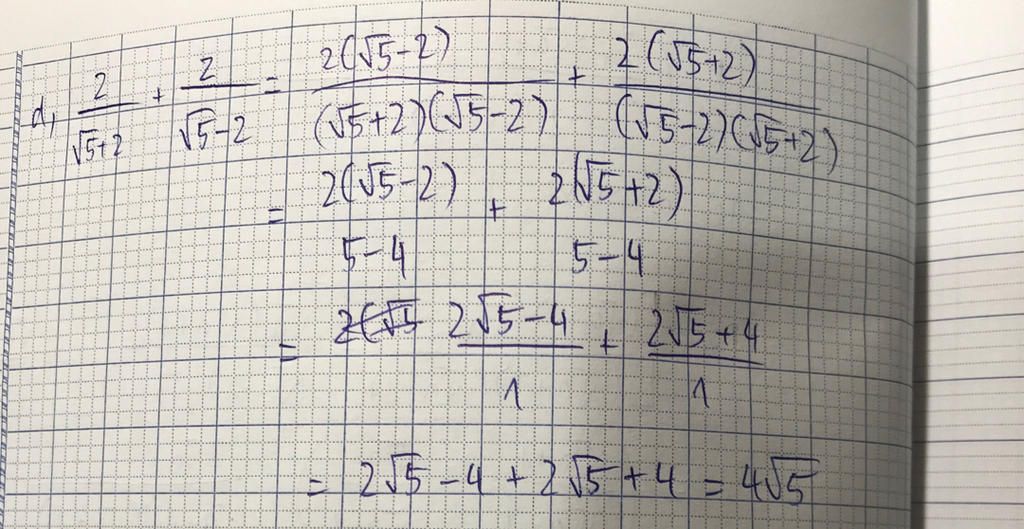 d, 2/(√5+2) + 2/(√5-2) = 2(√5-2)/((√5+2)(√5-2)) + 2(√5+2)/((√5-2)(√5+2))
= 2(√5-2)/(5-4) + 2(√5+2)/(5-4)
= 2(√5 (2√5-4)/1 + (2√5+4)/1
= 2√5-4+2√5+4 = 4√5